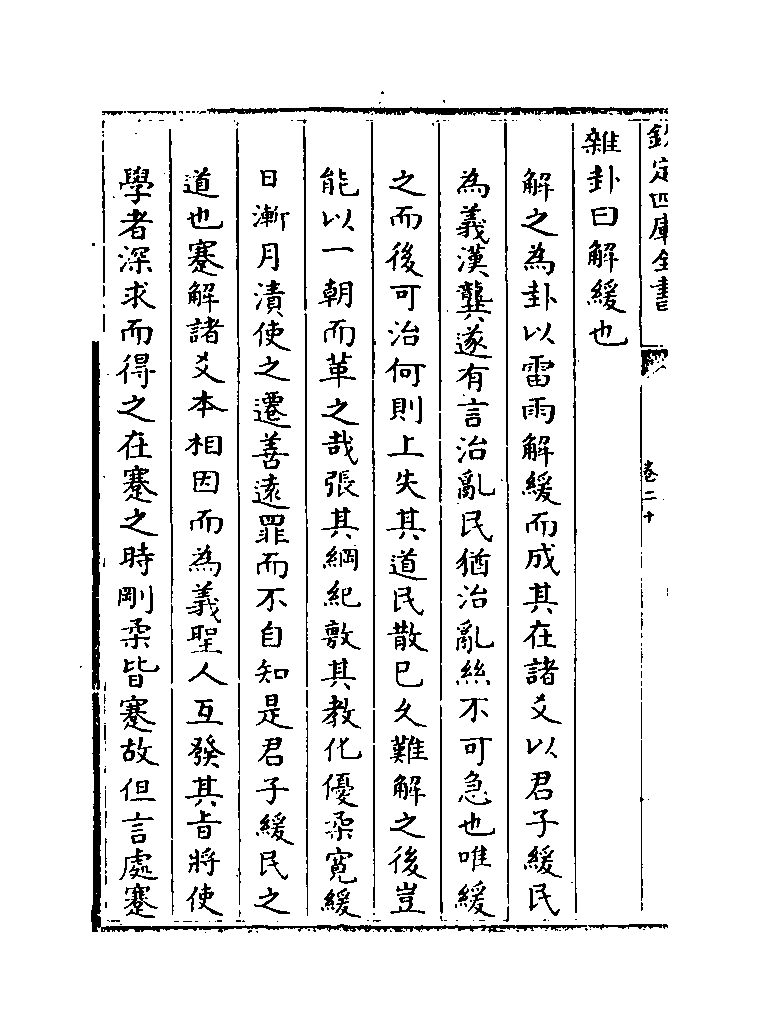 欽定四庫全書
卷二十
雜卦曰解緩也
解之為卦以雷雨解緩而成其在諸爻以君子緩民
為義漢龔遂有言治亂民猶治亂絲不可急也唯緩
之而後可治何則上失其道民散已久難解之後豈
能以一朝而革之哉張其綱紀敷其教化優柔寛緩
日漸月漬使之遷善逺罪而不自知是君子緩民之
道也蹇解諸爻本相因而為義聖人互發其㫖將使
學者深求而得之在蹇之時剛柔皆蹇故但言處蹇